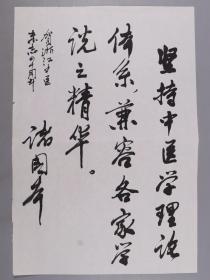 坚持中医学理论
体系，兼容各家学
说之精华。
贺浙江中医
杂志四十周年
诸国本